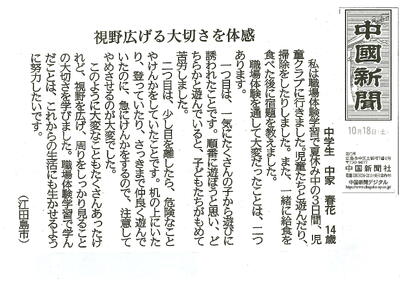 中國新聞
10月18日(土)
中国新聞社
中国新聞デジタル
視野広げる大切さを体感
中学生 中家 春花 14歳
私は職場体験学習で夏休み中の3日間、児
童クラブに行きました。児童たちと遊んだり、
掃除をしたりしました。また、一緒に給食を
食べた後に宿題を教えました。
職場体験を通して大変だったことは、二つ
あります。
一つ目は、一気にたくさんの子から遊びに
誘われたことです。順番に遊ぼうと思い、ど
ちらかと遊んでいると、子どもたちがもめて
苦労しました。
二つ目は、少し目を離したら、危険なこと
やけんかをしていたことです。机の上にいた
り、登っていたり、さっきまで仲良く遊んで
いたのに、急にけんかをするので、注意して
やめさせるのが大変でした。
このように大変なこともたくさんあったけ
れど、視野を広げ、周りをしっかり見ること
の大切さを学びました。職場体験学習で学ん
だことは、これからの生活にも生かせるよう
に努力したいです。
(江田島市)